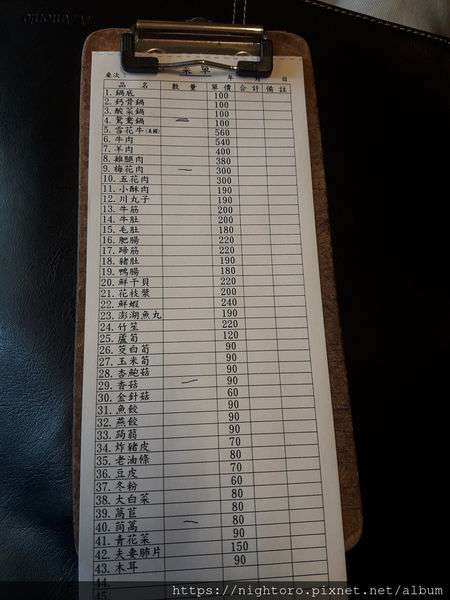 菜單
桌次 年 月 日
品名 數量 單價 合計 備註
1. 鍋底 100
2. 鈣骨鍋 100
3. 酸菜鍋 100
4. 鴛鴦鍋 二 100
5. 雪花牛 560
6. 牛肉 540
7. 羊肉 400
8. 雞腿肉 380
9. 梅花肉 一 300
10. 五花肉 300
11. 小酥肉 190
12. 川丸子 190
13. 牛筋 200
14. 牛肚 200
15. 毛肚 180
16. 肥腸 220
17. 蹄筋 220
18. 豬肚 190
19. 鴨腸 180
20. 鮮干貝 220
21. 花枝漿 200
22. 鮮蝦 240
23. 澎湖魚丸 190
24. 竹笙 220
25. 蘆筍 120
26. 茭白筍 90
27. 玉米筍 90
28. 杏鮑菇 90
29. 香菇 一 90
30. 金針菇 60
31. 魚餃 90
32. 燕餃 90
33. 蒟蒻 90
34. 炸豬皮 70
35. 老油條 80
36. 豆皮 70
37. 冬粉 60
38. 大白菜 80
39. 萵苣 80
40. 茼蒿 一 80
41. 青花菜 90
42. 夫妻肺片 150
43. 木耳 90
44.
45.
https://nightoro.pixnet.net/album